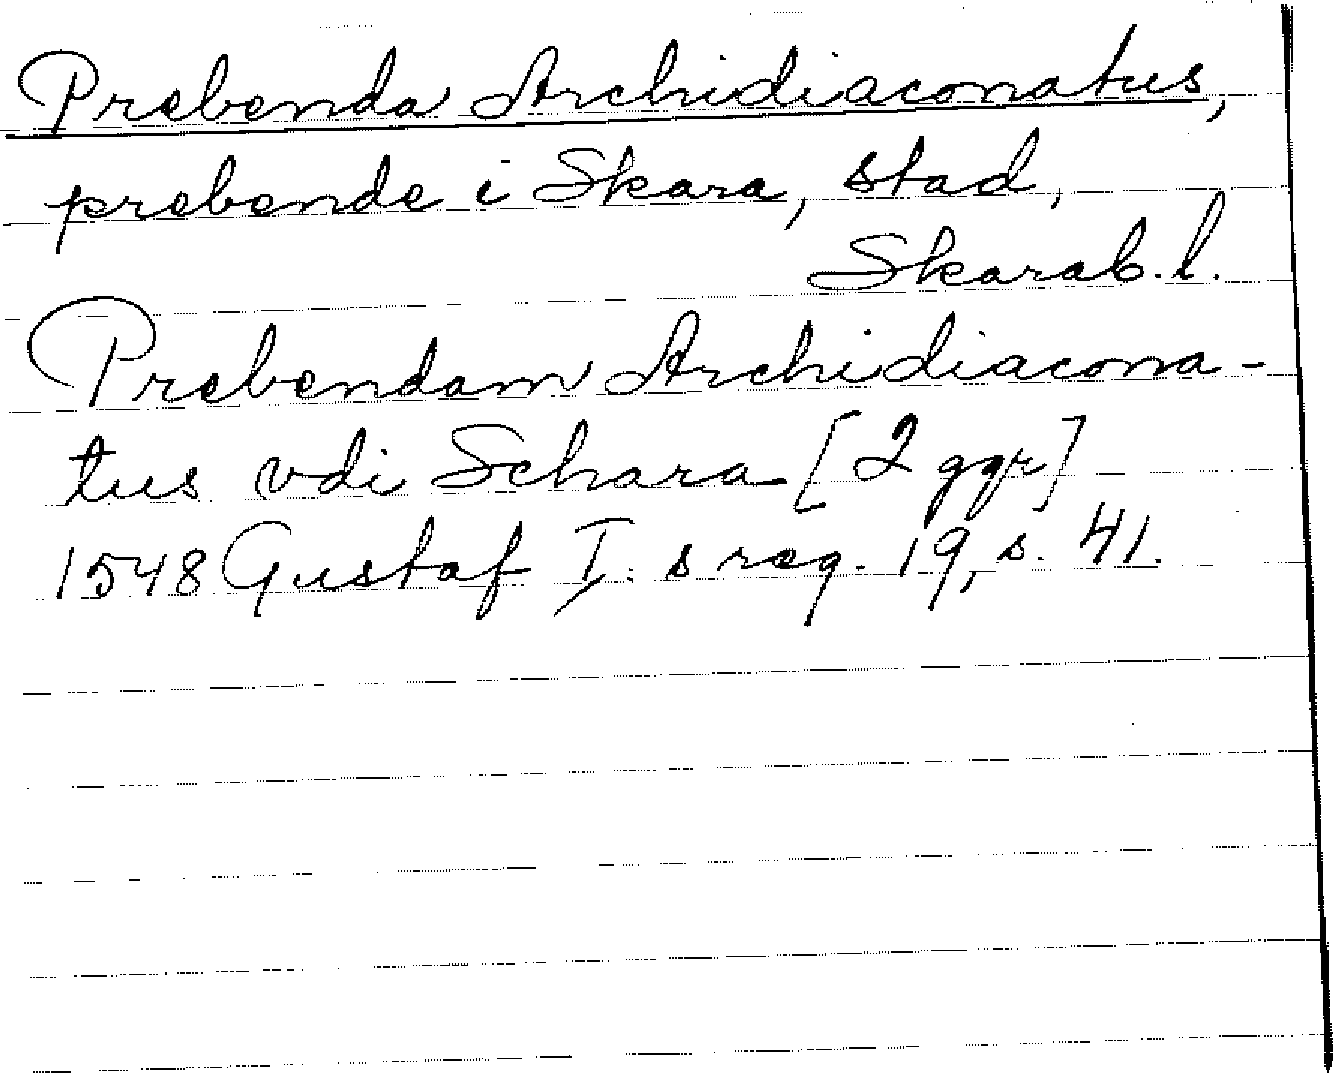 Prebenda Archidiaconatus,
prebende i Skara, stad,
Skarab. l.
Prebendam Archidiacona-
tus vdi Schara [2 ggr]
1548 Gustaf I:s reg. 19, s. 41.